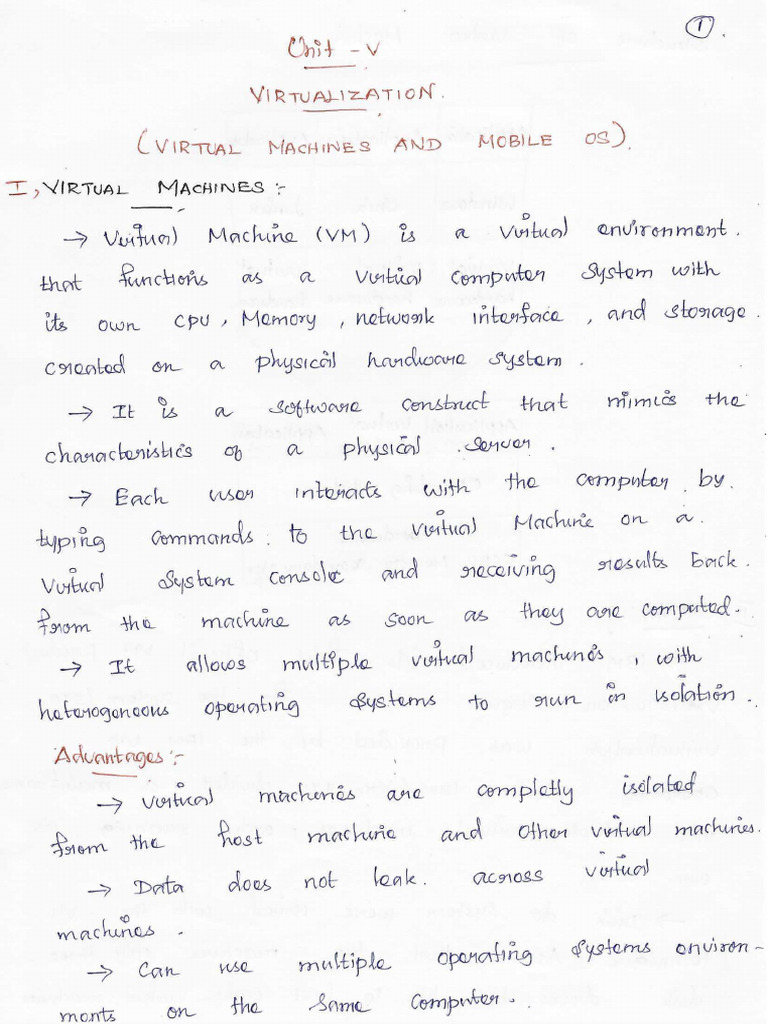 1
Unit - V
VIRTUALIZATION.
(VIRTUAL MACHINES AND MOBILE OS).
I, VIRTUAL MACHINES :-
→ Virtual Machine (VM) is a virtual environment.
that functions as a virtual computer system with
its own CPU, Memory, network interface, and storage.
created on a physical hardware system.
→ It is a software construct that mimics the
characteristics of a physical server.
→ Each user interacts with the computer by.
typing commands to the virtual Machine on a.
virtual system console and receiving results back.
from the machine as soon as they are computed.
→ It allows multiple virtual machines, with
heterogeneous operating systems to run in isolation.
Advantages :-
→ virtual machines are completly isolated
from the host machine and other virtual machines.
→ Data does not leak. across virtual
machines.
→ Can use multiple operating systems environ-
ments on the same computer.